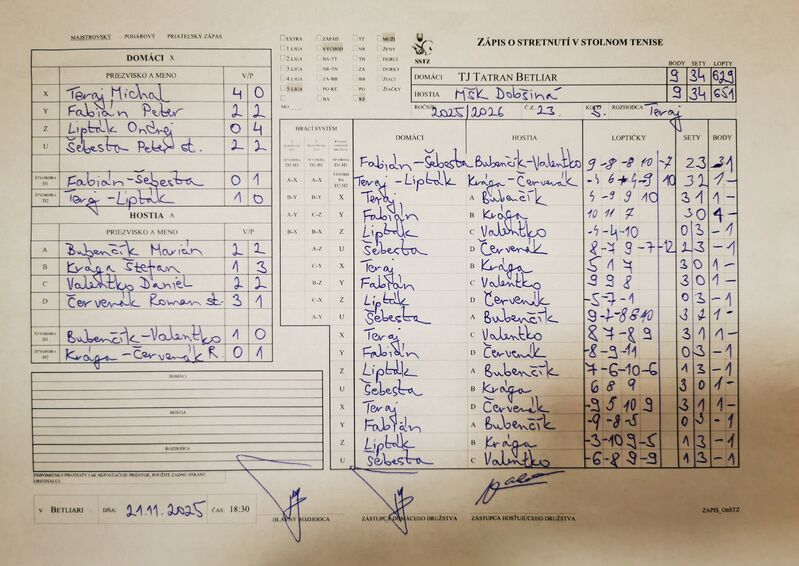 MAJSTROVSKÝ POHÁROVÝ PRIATEĽSKÝ ZÁPAS
DOMÁCI X
PRIEZVISKO A MENO V/P
X Teraj Michal 4 0
Y Fabián Peter 2 2
Z Lipták Ondrej 0 4
U Šebesta Peter st. 2 2
ŠTVORHRA D1 Fabián-Šebesta 0 1
ŠTVORHRA D2 Teraj-Lipták 1 0
HOSTIA A
PRIEZVISKO A MENO V/P
A Bubenčík Marián 2 2
B Krága Štefan 1 3
C Valentko Daniel 2 2
D Červenák Roman st. 3 1
ŠTVORHRA H1 Bubenčík-Valentko 1 0
ŠTVORHRA H2 Krága-Červenák R 0 1
DOMÁCI
HOSTIA
ROZHODCA
PRIPOMIENKY/PROTESTY (AK NEPOSTAČUJE PRIESTOR, POUŽITE ZADNÚ STRANU ORIGINÁLU)
V BETLIARI DŇA: 21.11.2025 ČAS: 18:30
EXTRA ZÁPAD TT MUŽI
1.LIGA VÝCHOD NR ŽENY
2.LIGA BA/TT TN DORCI
3.LIGA NR-TN ZA DORKY
4.LIGA ZA-BB BB ŽIACI
5.LIGA PO-KE PO ŽIAČKY
MO BA KE
SSTZ
ZÁPIS O STRETNUTÍ V STOLNOM TENISE
BODY SETY LOPTY
DOMÁCI TJ TATRAN BETLIAR 9 34 629
HOSTIA MŠK Dobšiná 9 34 651
ROČNÍK 2025/2026 Č.Z. 23. KOLO 5. ROZHODCA Teraj
HRACÍ SYSTÉM DOMÁCI HOSTIA LOPTIČKY SETY BODY
Fabián-Šebesta Bubenčík-Valentko 9 -8 -8 10 -7 2 3 -1
Teraj-Lipták Krága-Červenák -4 6 -4 9 10 3 2 1 -
B-Y B-Y X Teraj A Bubenčík -4 9 9 10 3 1 1 -
A-Y C-Z Y Fabián B Krága 10 11 7 3 0 1 -
B-X B-X Z Lipták C Valentko -4 -4 -10 0 3 -1
A-Z U Šebesta D Červenák 8 -7 9 -7 -12 2 3 -1
C-Y X Teraj B Krága 5 1 7 3 0 1 -
B-Z Y Fabián C Valentko 9 9 8 3 0 1 -
C-X Z Lipták D Červenák -5 -7 -1 0 3 -1
A-Y U Šebesta A Bubenčík 9 -7 8 10 3 1 1 -
X Teraj C Valentko 8 7 -8 9 3 1 1 -
Y Fabián D Červenák -8 -9 -11 0 3 -1
Z Lipták A Bubenčík 7 -6 -10 -6 1 3 -1
U Šebesta B Krága 6 8 9 3 0 1 -
X Teraj D Červenák -9 5 10 9 3 1 1 -
Y Fabián A Bubenčík -9 -8 -5 0 3 -1
Z Lipták B Krága -3 -10 9 -5 1 3 -1
U Šebesta C Valentko -6 -8 9 -9 1 3 -1
HLAVNÝ ROZHODCA ZÁSTUPCA DOMÁCEHO DRUŽSTVA ZÁSTUPCA HOSŤUJÚCEHO DRUŽSTVA ZAPIS_OnSTZ